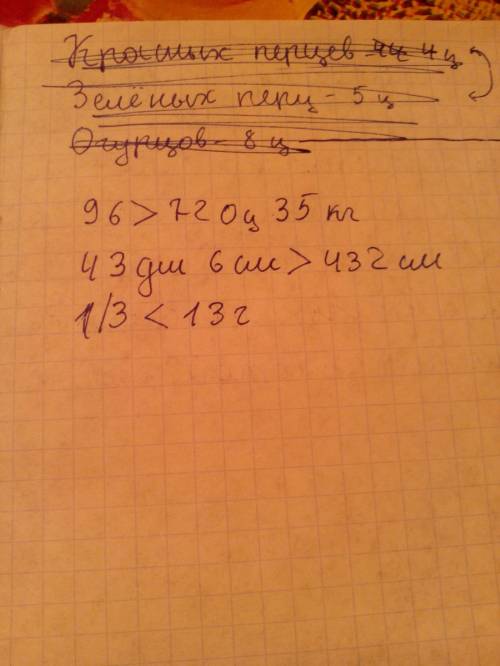 Красных перцев 4ц 4 ц
Зелёных перц - 5 ц
Огурцов - 8 ц
96 > 720ц 35 кг
43 дм 6 см > 432 см
1/3 < 13г